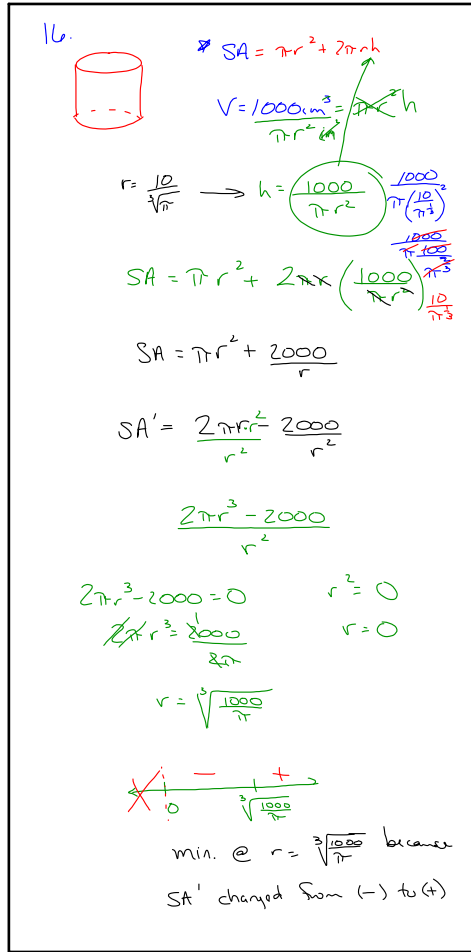 16.
* SA = πr² + 2πrh
V = 1000cm³/πr² = πr²h
r = 10/∛π → h = 1000/πr²
1000/π(10/π^⅓)²
1000/π 100/π^⅔
10/π^⅓
SA = πr² + 2πr (1000/πr²)
SA = πr² + 2000/r
SA' = 2πr·r²/r² - 2000/r²
2πr³ - 2000/r²
2πr³ - 2000 = 0 r² = 0
2πr³ = 2000/2π r = 0
r = ∛(1000/π)
- +
0 ∛(1000/π)
min. @ r = ∛(1000/π) because
SA' changed from (-) to (+)